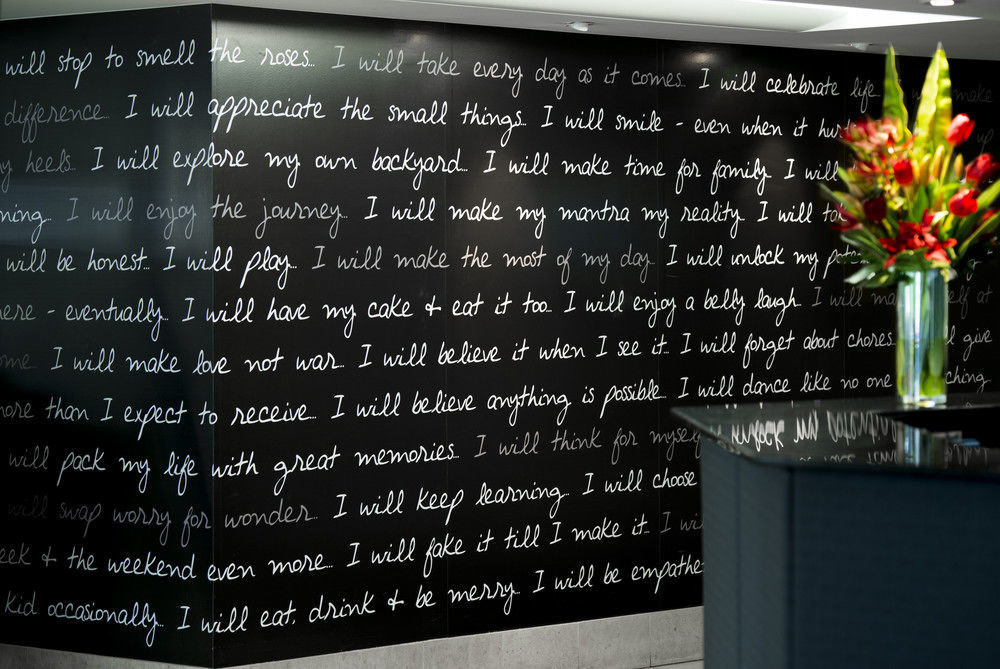 will stop to smell the roses... I will take every day as it comes... I will celebrate life
difference... I will appreciate the small things... I will smile - even when it
heels... I will explore my own backyard... I will make time for family... I will
I will enjoy the journey... I will make my mantra my reality... I will
will be honest... I will play... I will make the most of my day... I will unlock my
eventually... I will have my cake & eat it too... I will enjoy a belly laugh... I will
I will make love not war... I will believe it when I see it... I will forget about chores... give
more than I expect to receive... I will believe anything is possible... I will dance like no one
will pack my life with great memories... I will think for
will swap worry for wonder... I will keep learning... I will choose
& the weekend even more... I will fake it till I make it... I
kid occasionally... I will eat, drink & be merry... I will be